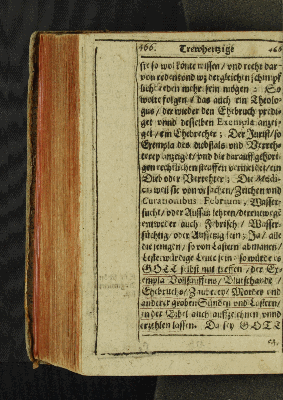 166. Trewhertzige
sie so wol könte wissen / vnd recht dar-
von reden vnd wz dergleichen schimpf-
licher reden mehr sein mögen: So
wolte folgen / das auch ein Theolo-
gus / der wieder den Ehebruch predi-
get vnnd desselben Exempla anzei-
get / ein Ehebrecher; Der Jurist / so
Exempla des diebstals vnd Verreh-
terey anzeiget / vnd die darauff gehöri-
gen rechtlichen straffen vermeldet / ein
Dieb oder Verrehter; Die Medi-
ci, weil sie von vrsachen / Zeichen vnd
Curationibus Febrium, Wasser-
sucht / oder Aussatz lehren / derentwegē
entweder auch Febrisch / Wasser-
süchtig / oder Aussetzig sein; Ja / alle
die jenigen / so von Lastern abmahnen /
lasterwürdige Leute sein: so würde es
GOTT selbst mit treffen / der Ex-
empla Vollsauffens / Blutschande /
Ehebruchs / Zauberey / Mordes vnd
anderer groben Sünden vnd Lastern /
in der Bibel auch auffzeichnen vnnd
erzehlen lassen. Da sey GOTT